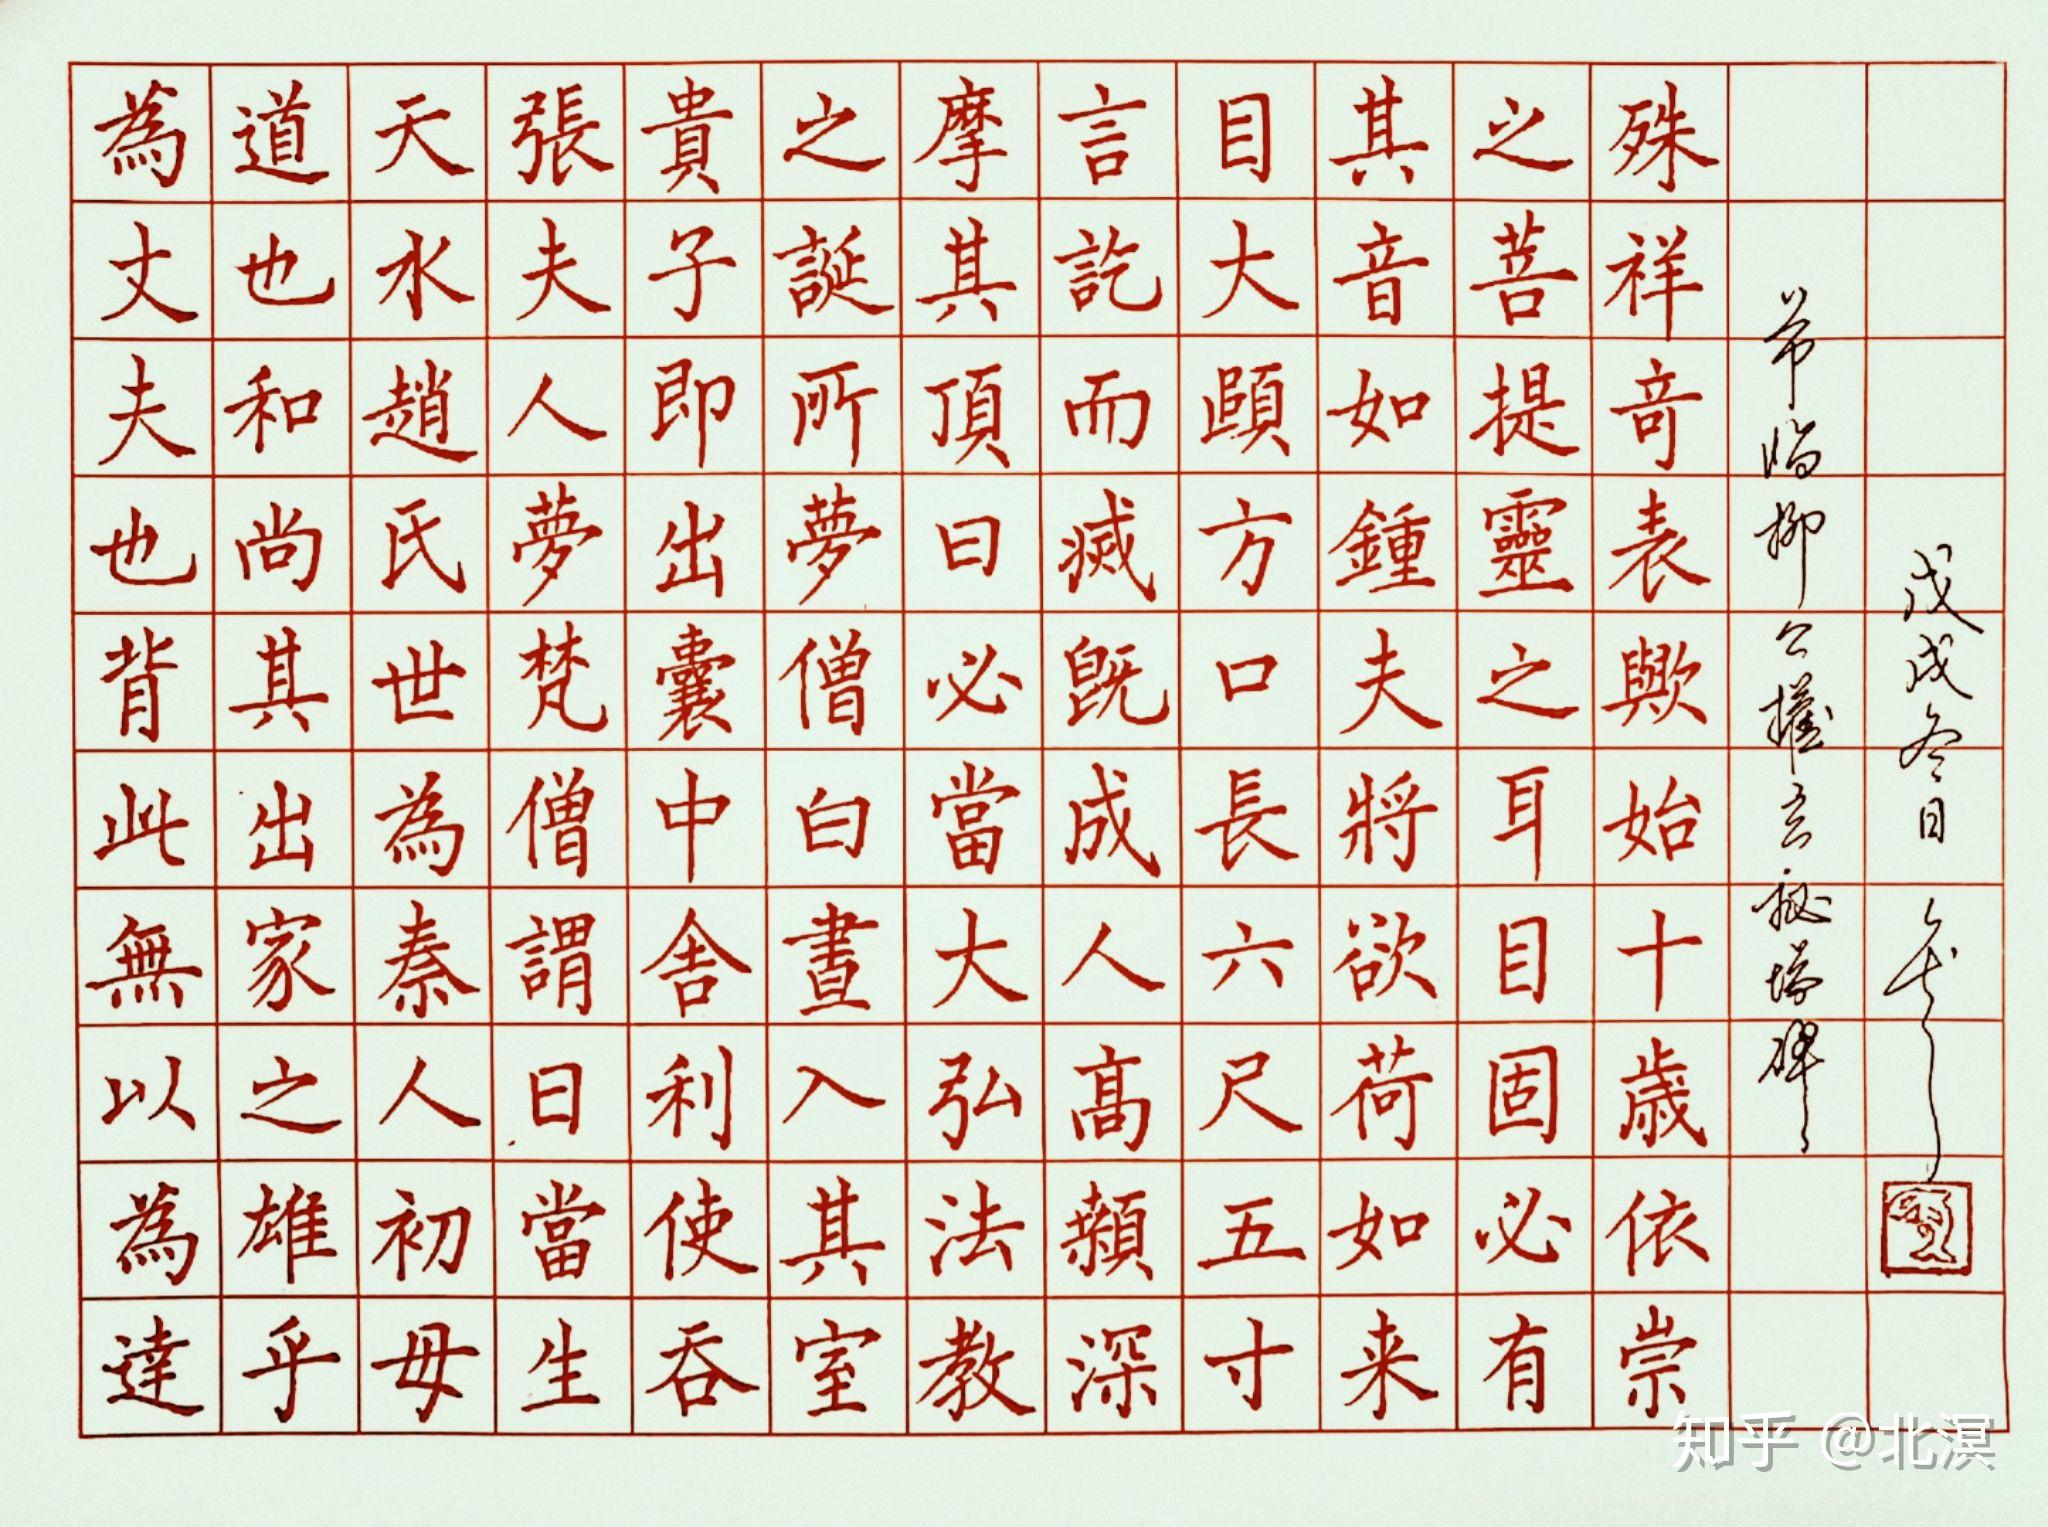 為丈夫也背此無以為達
道也和尚其出家之雄乎
天水趙氏世為秦人初母
張夫人夢梵僧謂曰當生
貴子即出囊中舍利使吞
之誕所夢僧白晝入其室
摩其頂曰必當大弘法教
言訖而滅既成人高顙深
目大頤方口長六尺五寸
其音如鍾夫將欲荷如来
之菩提靈之耳目固必有
殊祥奇表歟始十歲依崇
節臨柳公權玄秘塔碑
戊戌冬日
知乎 @北溟